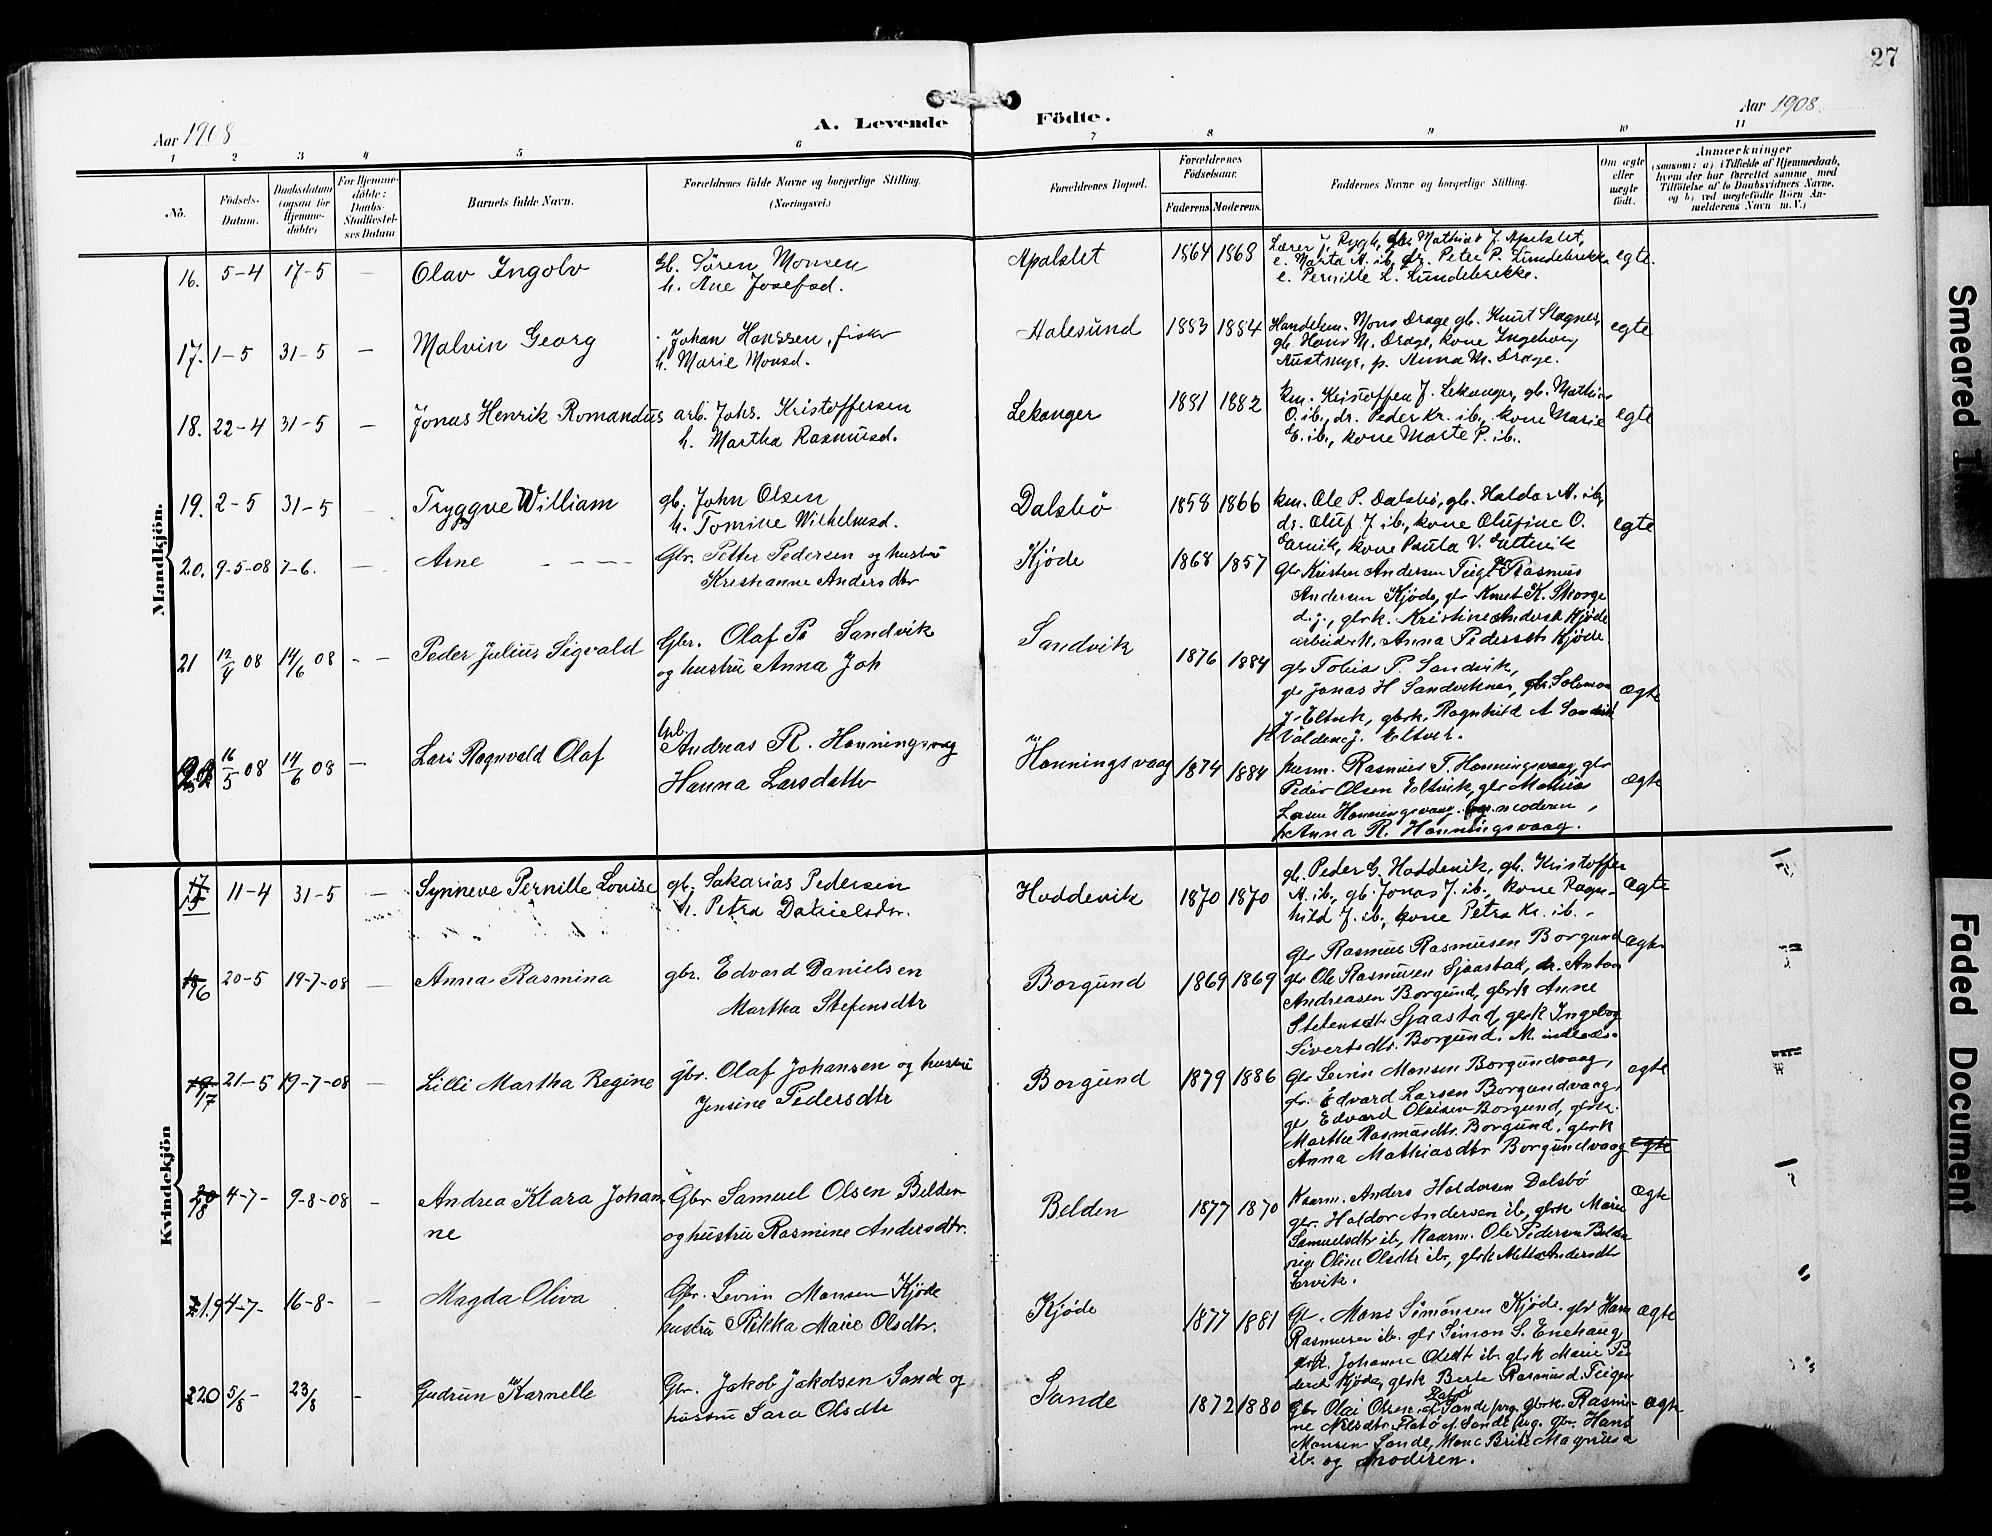 27
Aar 1908
A. Levende Födte.
Aar 1908.
1 2 3 4 5 6 7 8 9 10 11
No.
Födsels-
Datum.
Daabsdatum
(ogsaa for
Hjemme-
döbte)
For Hjemme-
döbte:
Daabs-
Stadfæstel-
ses Datum
Barnets fulde Navn.
Forældrenes fulde Navne og borgerlige Stilling.
(Næringsvei.)
Forældrenes Bopæl.
Forældrenes
Födselsaar.
Faderens. Moderens.
Faddernes Navne og borgerlige Stilling.
Om ægte
eller
uægte
födt.
Anmærkninger
(saasom: a) i Tilfælde af Hjemmedaab,
hvem der har forrettet samme, med
Tilföielse af to Daabsvidners Navne,
og b) ved uægtefödte Börn An-
melderens Navn m.V.)
Mandkjön.
16. 5-4 17-5 — Olav Ingolv
gb. Sören Monsen
h. Ane Josefsd.
Apalset 1864 1868
Lærer J. Rygh, gb. Mathias J. Apalset,
e. Marta A. ib., dr. Petter P. Lundebrekke
e. Pernille L. Lundebrekke.
egte.
17. 1-5 31-5 — Malvin Georg
Johan Hanssen, fisker
h. Marie Monsd.
Aalesund 1883 1884
Handelsm. Mons Drage gb. Knut Stagnes,
gb. Hans M. Drage, kone Ingeborg
p. Anna M. Drage.
egte
18. 22-4 31-5 — Jonas Henrik Romandus
arb. Johs. Kristoffersen
h. Martha Rasmusd.
Lekanger 1881 1882
km. Kristoffer J. Lekanger, gb. Mathias
O. ib., dr. Peder Kr. ib., kone Marie
E. ib., kone Marte P. ib.
egte
19. 2-5 31-5 — Tryggve William
gb. John Olsen
h. Tomine Vilhelmsd.
Dalsbø 1858 1866
km. Ole P. Dalsbö, gb. Haldor A. ib,
dr. Oluf J. ib., kone Olufine O.
Ervik, kone Paula V. Eltevik
egte
20. 9-5-08 7-6. — Arne
Gbr. Petter Pedersen og hustru
Kristianne Andersdtr
Kjøde 1868 1857
gbr Kristen Andersen Teige Rasmus
Andersen Kjöde, gbr Knut K. Skorge
d.y., gbrk. Kristine Andersdt Kjöde
arbeidsk. Anna Pedersdt Kjöde
21 12/4 08 14/6 08 - - Peder Julius Sigvald
Gbr. Olaf Ps Sandvik
og hustru Anna Joh
Sandvik 1876 1884
gbr Tobias P. Sandvik,
gbr Jonas H Sandviknes, gbr Salomon
J. Eltvik, gbrk. Ragnhild A Sandvik
p Valdine J. Eltvik.
ægte
22 16/5 08 14/6 08 — Lars Ragnvald Olaf
Gbr.
Andreas R. Honningsvaag
Hanna Larsdatter
Honningsvaag 1874 1884
husm. Rasmus T. Honningsvaag, gbr
Peder Olsen Eltvik, gbr Mathias
Larsen Honningsvaag. moderen,
p Anna R. Honningsvaag.
ægte
Kvindekjön
17
15 11-4 31-5 — Synneve Pernille Louise
gb. Sakarias Pedersen
h. Petra Danielsdtr.
Hoddevik 1870 1870
gb. Peder G. Hoddevik, gb. Kristoffer
A. ib., gb. Jonas J. ib., kone Ragn-
hild J. ib., kone Petra Kr. ib.
ægte
18
16 20-5 19-7-08 — Anna Rasmina
gbr. Edvard Danielsen
Martha Stefensdtr
Borgund 1869 1869
Gbr Rasmus Rasmusen Borgund
gbr Ole Rasmusen Sjaastad, dr. Anton
Andreasen Borgund, gbrk Anne
Stefensdtr Sjaastad, gbrk Ingeborg
Sivertsdtr. Borgund. M. indleds.
ægte
19
17 21-5 19-7-08 — Lilli Martha Regine
gbr. Olaf Johansen og hustru
Jensine Pedersdtr
Borgund 1879 1886
Gbr Levin Monsen Borgundvaag,
gbr. Edvard Larsen Borgundvaag,
gbr Edvard Olaisen Borgund, gbrk.
Marthe Rasmusdtr. Borgund, gbrk
Anna Mathiasdtr Borgundvaag
egte
egte
20
18 4-7- 9-8-08 — Andrea Klara Johan
ne
Gbr Samuel Olsen Belden
og hustru Rasmine Andersdtr.
Belden 1877 1870
Kaarm. Anders Haldorsen Dalsbö
gbr. Haldor Andersen ib, gbrk Marie
Samuelsdtr ib, Kaarm. Ole Pedersen Belden
pige Oline Olsdtr ib, gbrk Mette Andersdtr
Ervik.
Ægte
19 4-7- 16-8- — Magda Oliva
Gbr. Levin Monsen Kjöde
hustru Rikka Marie Olsdtr.
Kjøde 1877 1881
Gbr. Mons Simonsen Kjöde, gbr Hans
Rasmusen ib. gbr Simon S. Enehaug
gbrk. Johanne Olsdtr ib. gbrk Marie Pe-
dersd Kjöde, gbrk Berte Rasmusd Teigen
ægte
20 5/8- 23/8 - Gudrun Karnelle
Gbr. Jakob Jakobsen Sande og
hustru Sara Olsdtr
Sande 1872 1880
Gbr Olai Olsen Sande, gbrk. Rasmi-
ne Nilsdtr. Flatö gbr. Hans
Monsen Sande, Kone Brite Magnusd
ib. og Moderen.
ægte
Smeared
Faded Document